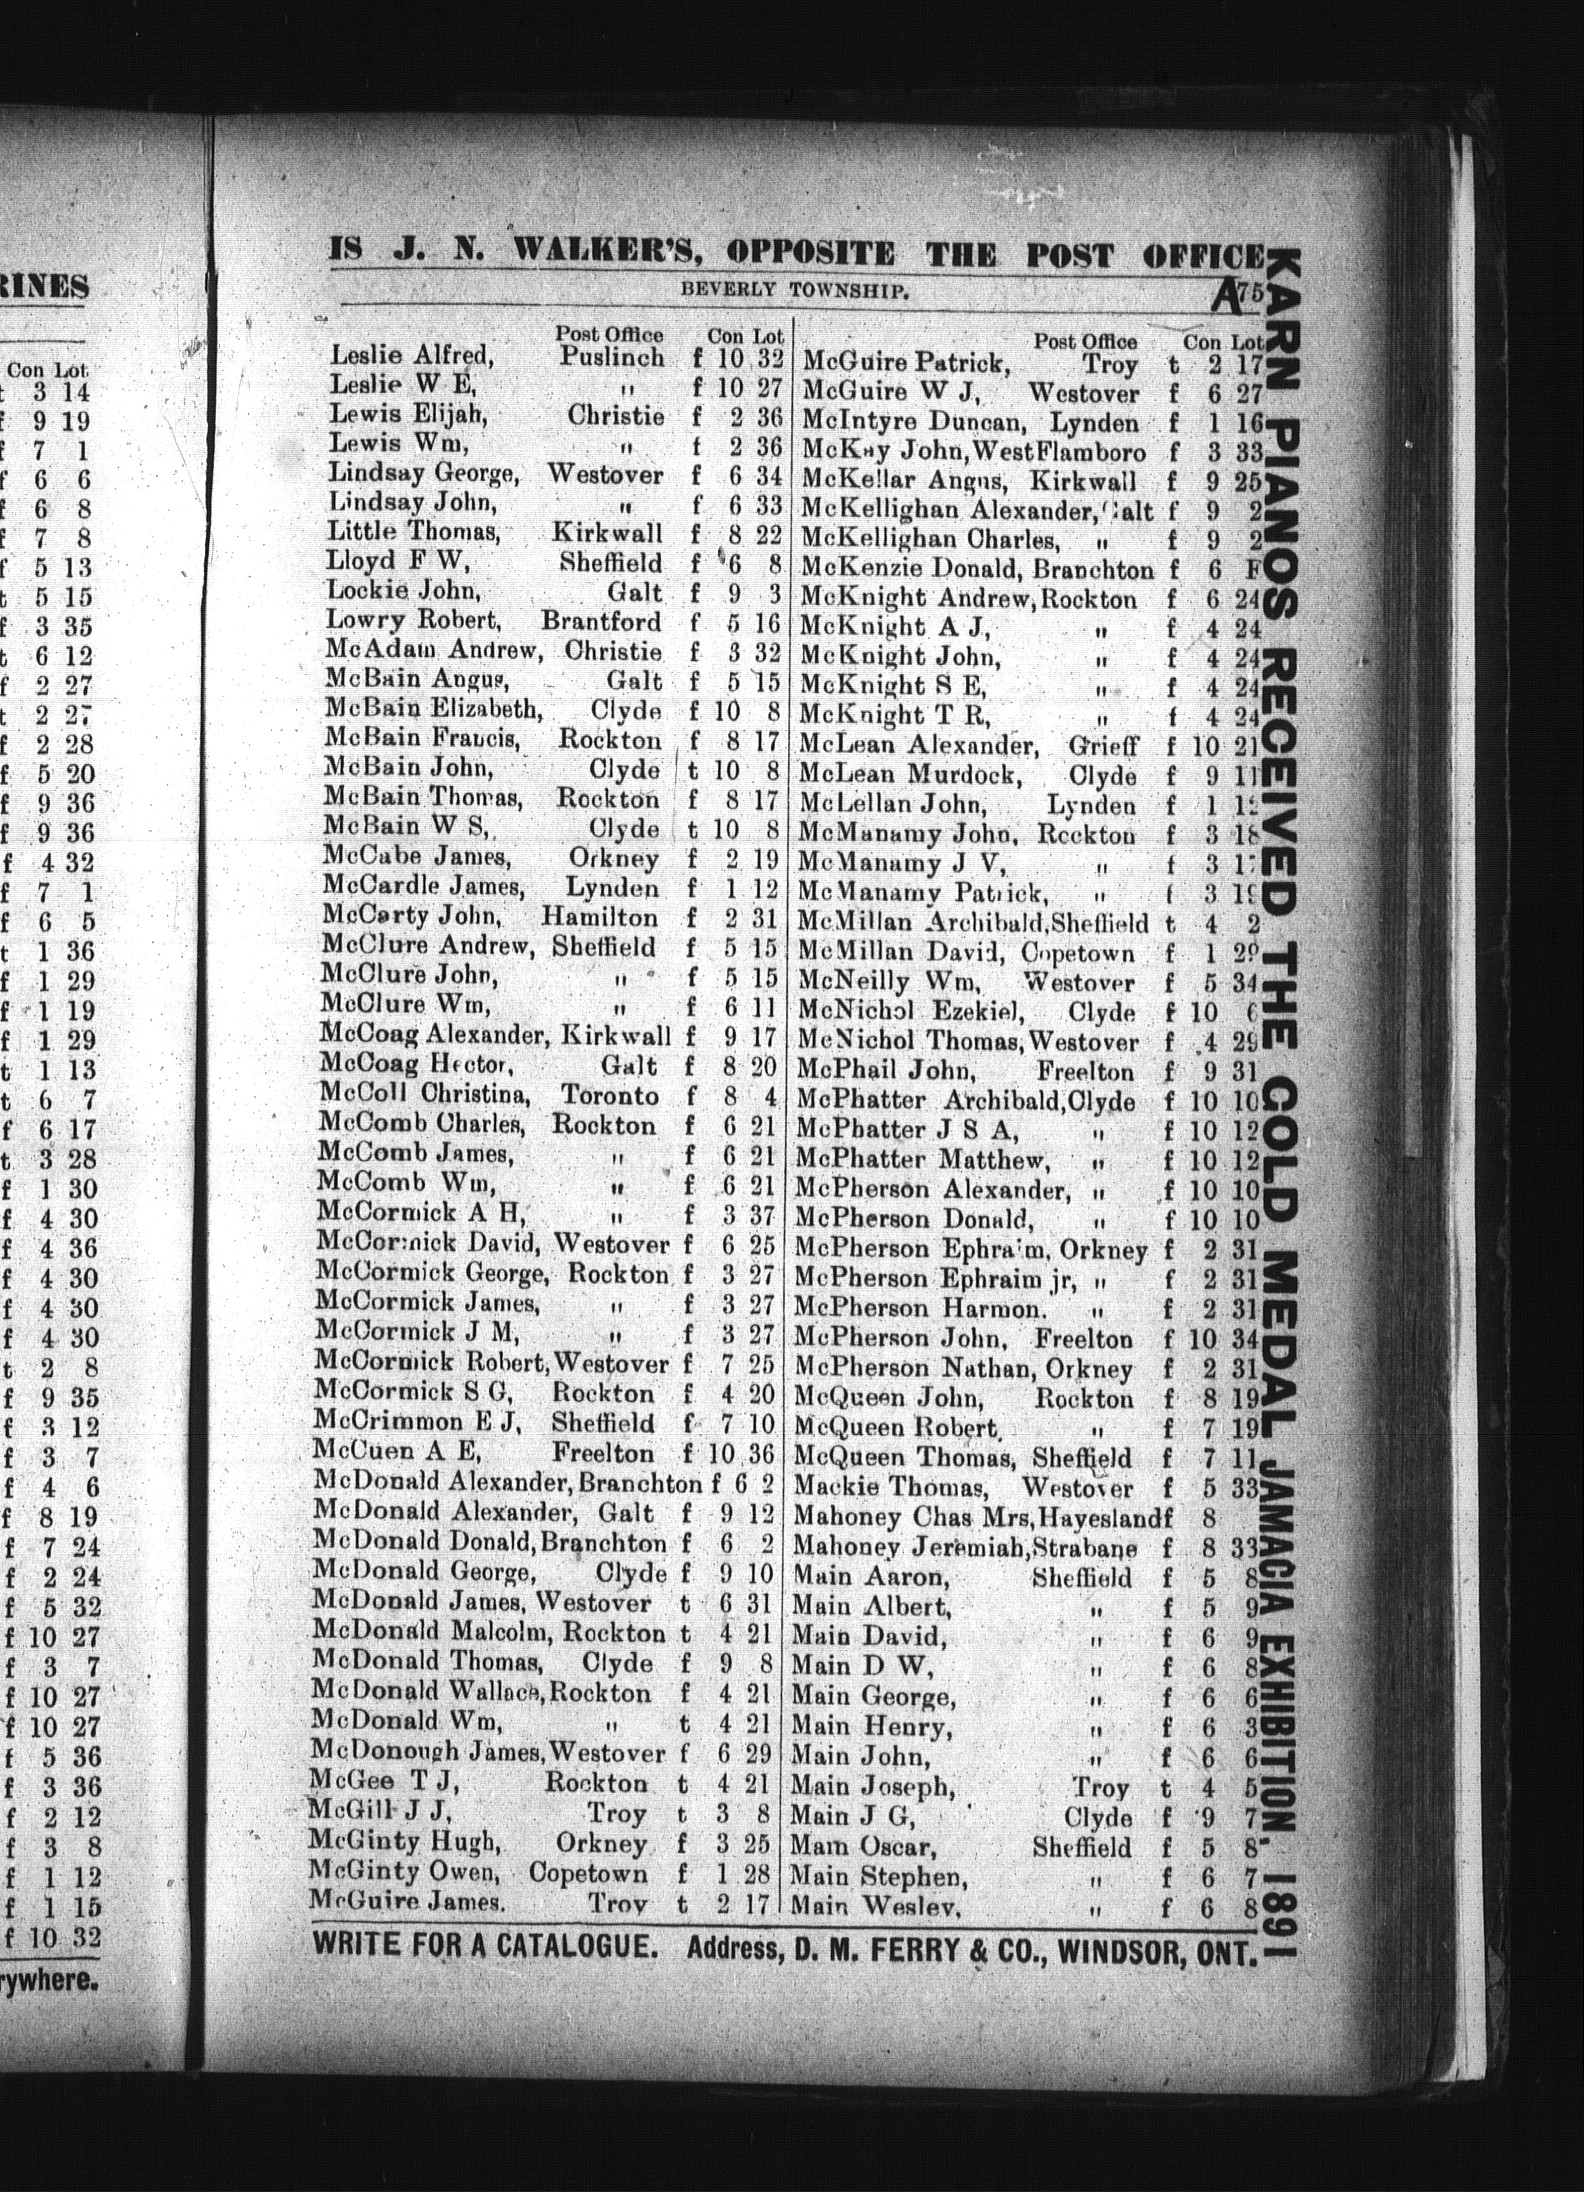 RINES
Con Lot
t 3 14
f 9 19
f 7 1
f 6 6
f 6 8
f 7 8
f 5 13
t 5 15
f 3 35
t 6 12
f 2 27
t 2 27
f 2 28
f 5 20
f 9 36
f 9 36
f 4 32
f 7 1
f 6 5
t 1 36
f 1 29
f 1 19
f 1 29
t 1 13
t 6 7
f 6 17
t 3 28
f 1 30
f 4 30
f 4 36
f 4 30
f 4 30
f 4 30
t 2 8
f 9 35
f 3 12
f 3 7
f 4 6
f 8 19
f 7 24
f 2 24
f 5 32
f 10 27
f 3 7
f 10 27
f 10 27
f 5 36
f 3 36
f 2 12
f 3 8
f 1 12
f 1 15
f 10 32
rywhere.
IS J. N. WALKER'S, OPPOSITE THE POST OFFICE
BEVERLY TOWNSHIP. A75
Post Office Con Lot
Leslie Alfred, Puslinch f 10 32
Leslie W E, " f 10 27
Lewis Elijah, Christie f 2 36
Lewis Wm, " f 2 36
Lindsay George, Westover f 6 34
Lindsay John, " f 6 33
Little Thomas, Kirkwall f 8 22
Lloyd F W, Sheffield f 6 8
Lockie John, Galt f 9 3
Lowry Robert, Brantford f 5 16
McAdam Andrew, Christie f 3 32
McBain Angus, Galt f 5 15
McBain Elizabeth, Clyde f 10 8
McBain Francis, Rockton f 8 17
McBain John, Clyde t 10 8
McBain Thomas, Rockton f 8 17
McBain W S, Clyde t 10 8
McCabe James, Orkney f 2 19
McCardle James, Lynden f 1 12
McCarty John, Hamilton f 2 31
McClure Andrew, Sheffield f 5 15
McClure John, " f 5 15
McClure Wm, " f 6 11
McCoag Alexander, Kirkwall f 9 17
McCoag Hector, Galt f 8 20
McColl Christina, Toronto f 8 4
McComb Charles, Rockton f 6 21
McComb James, " f 6 21
McComb Wm, " f 6 21
McCormick A H, " f 3 37
McCormick David, Westover f 6 25
McCormick George, Rockton f 3 27
McCormick James, " f 3 27
McCormick J M, " f 3 27
McCormick Robert, Westover f 7 25
McCormick S G, Rockton f 4 20
McCrimmon E J, Sheffield f 7 10
McCuen A E, Freelton f 10 36
McDonald Alexander, Branchton f 6 2
McDonald Alexander, Galt f 9 12
McDonald Donald, Branchton f 6 2
McDonald George, Clyde f 9 10
McDonald James, Westover t 6 31
McDonald Malcolm, Rockton t 4 21
McDonald Thomas, Clyde f 9 8
McDonald Wallace, Rockton f 4 21
McDonald Wm, " t 4 21
McDonough James, Westover f 6 29
McGee T J, Rockton t 4 21
McGill J J, Troy t 3 8
McGinty Hugh, Orkney f 3 25
McGinty Owen, Copetown f 1 28
McGuire James. Troy t 2 17
Post Office Con Lot
McGuire Patrick, Troy t 2 17
McGuire W J, Westover f 6 27
McIntyre Duncan, Lynden f 1 16
McKay John, West Flamboro f 3 33
McKellar Angus, Kirkwall f 9 25
McKellighan Alexander, Galt f 9 2
McKellighan Charles, " f 9 2
McKenzie Donald, Branchton f 6 F
McKnight Andrew, Rockton f 6 24
McKnight A J, " f 4 24
McKnight John, " f 4 24
McKnight S E, " f 4 24
McKnight T R, " f 4 24
McLean Alexander, Grieff f 10 21
McLean Murdock, Clyde f 9 11
McLellan John, Lynden f 1
McManamy John, Rockton f 3 18
McManamy J V, " f 3 17
McManamy Patrick, " f 3 19
McMillan Archibald, Sheffield t 4 2
McMillan David, Copetown f 1 29
McNeilly Wm, Westover f 5 34
McNichol Ezekiel, Clyde f 10 6
McNichol Thomas, Westover f 4 29
McPhail John, Freelton f 9 31
McPhatter Archibald, Clyde f 10 10
McPhatter J S A, " f 10 12
McPhatter Matthew, " f 10 12
McPherson Alexander, " f 10 10
McPherson Donald, " f 10 10
McPherson Ephraim, Orkney f 2 31
McPherson Ephraim jr, " f 2 31
McPherson Harmon. " f 2 31
McPherson John, Freelton f 10 34
McPherson Nathan, Orkney f 2 31
McQueen John, Rockton f 8 19
McQueen Robert, " f 7 19
McQueen Thomas, Sheffield f 7 11
Mackie Thomas, Westover f 5 33
Mahoney Chas Mrs, Hayesland f 8
Mahoney Jeremiah, Strabane f 8 33
Main Aaron, Sheffield f 5 8
Main Albert, " f 5 9
Main David, " f 6 9
Main D W, " f 6 8
Main George, " f 6 6
Main Henry, " f 6 3
Main John, " f 6 6
Main Joseph, Troy t 4 5
Main J G, Clyde f 9 7
Main Oscar, Sheffield f 5 8
Main Stephen, " f 6 7
Main Wesley, " f 6 8
WRITE FOR A CATALOGUE. Address, D. M. FERRY & CO., WINDSOR, ONT.
KARN PIANOS RECEIVED THE GOLD MEDAL JAMACIA EXHIBITION 1891